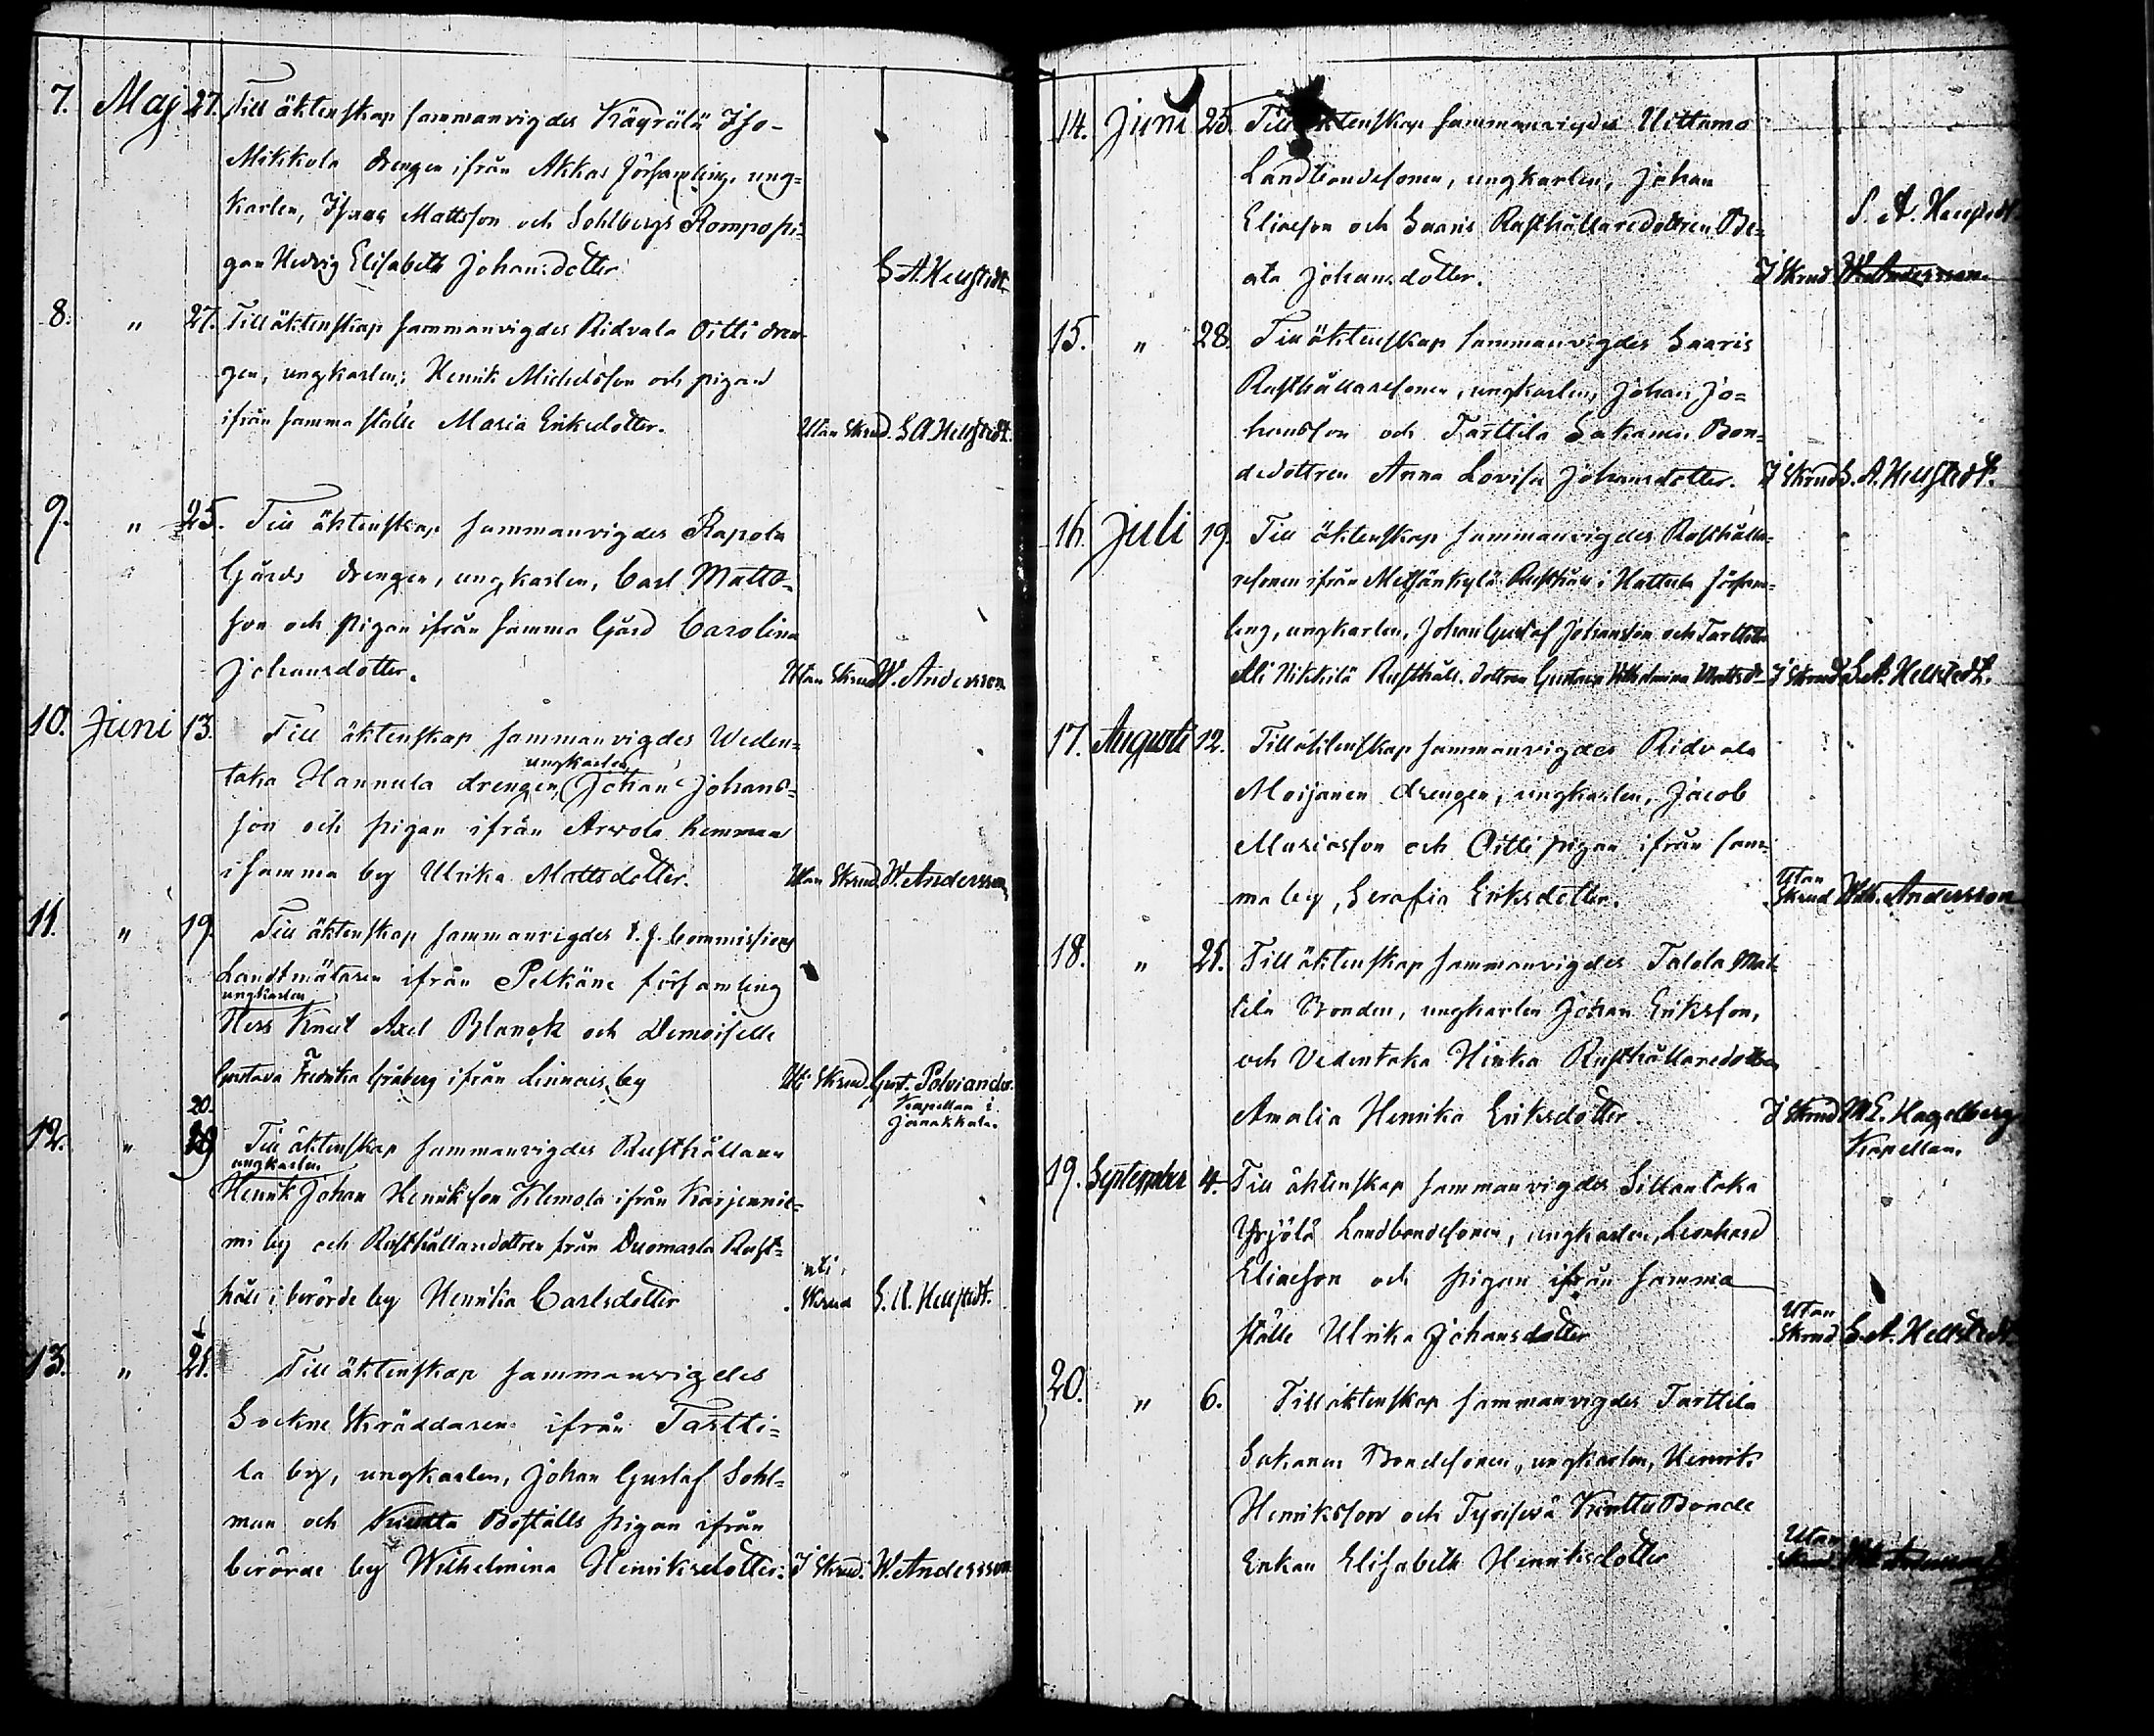 7. Maj 27. Till äktenskap sammanvigdes Kägrälä Iso-
Mikkola drengen ifrån Akkas församling, ung=
karlen, Isaac Mattsson och Sohlbergs Rompo pi=
gan Hedvig Elisabeth Johansdotter. S. A. Hellstedt
8. " 27. Till äktenskap sammanvigdes Ridvala Oitti dren-
gen, ungkarlen, Henrik Michelsson och pigan
ifrån samma ställe Maria Eriksdotter. Utan Skrud. S. A. Hellstedt.
9. " 25. Till äktenskap sammanvigdes Rapola
Gårds drengen, ungkarlen, Carl Matts-
son och pigan ifrån samma Gård Carolina
Johansdotter. Utan Skrud W. Andersson
10. Juni 13. Till äktenskap sammanvigdes Weden=
ungkarlen,
taka Hannula drengen, Johan Johans=
son och pigan ifrån Arvola hemman
i samma by Ulrika Mattsdotter. Utan Skrud. W. Andersson
11. " 19. Till äktenskap sammanvigdes t. f. Commissions
Landtmätaren ifrån Pelkäne församling
ungkarlen
Herr Knut Axel Blanck och Demoiselle
Gustava Fredrika Gråberg ifrån Linnais by Uti Skrud. Gust. Polviander.
Kapellan i
Janakkala.
20.
12. " Till äktenskap sammanvigdes Rusthållaren
ungkarlen
Henrik Johan Henriksson Klemola ifrån Karjennie=
mi by och Rusthållaredottren från Duomarla Rust=
håll i berörde by Henrika Carlsdotter uti Skrud S. A. Hellstedt.
13. " 21. Till äktenskap sammanvigdes
Sockne Skräddaren ifrån Tartti=
la by, ungkarlen, Johan Gustaf Sohl=
man och Boställs pigan ifrån
berörde by Wilhelmina Henriksdotter. I Skrud. W. Andersson
14. Juni 25. Till äktenskap sammanvigdes Uittamo
Landbondesonen, ungkarlen, Johan
Eliaeson och Saaris Rusthållaredottren Be= S. A. Hellstedt.
ata Johansdotter. I Skrud W. Andersson
15. " 28. Till äktenskap sammanvigdes Saaris
Rusthållaresonen, ungkarlen, Johan Jo=
hansson och Tarttila Sakanen Bon=
dedottren Anna Lovisa Johansdotter. I Skrud S. A. Hellstedt.
16. Juli 19. Till äktenskap sammanvigdes Rusthålla=
resonen ifrån Metsänkylä Rusthåll i Hattula försam=
ling, ungkarlen, Johan Gustaf Johansson och Tarttila
Ali Nikkilä Rusthåll. dottren Gustava Wilhelmina Mattsd. I Skrud S. A. Hellstedt.
17. Augusti 12. Till äktenskap sammanvigdes Ridvala
Moijanen drengen, ungkarlen, Jacob
Mariasson och Oitti pigan ifrån sam=
ma by, Serafia Eriksdotter. Utan Skrud Wilh. Andersson
18. " 21. Till äktenskap sammanvigdes Talola Mat-
tila Bonden, ungkarlen Johan Eriksson,
och Vedentaka Hinka Rusthållaredottren
Amalia Henrika Eriksdotter. I Skrud M. E. Hagelberg
Kapellan.
19. September 4. Till äktenskap sammanvigdes Sillantaka
Yrjölä Landbondesonen, ungkarlen, Leonhard
Eliaeson och pigan ifrån samma
ställe Ulrika Johansdotter Utan Skrud S. A. Hellstedt
20. " 6. Till äktenskap sammanvigdes Tarttila
Sakanen Bondesonen, ungkarlen, Henrik
Henriksson och Tyrisevä Knuttu Bonde
Enkan Elisabeth Henriksdotter Utan Skrud